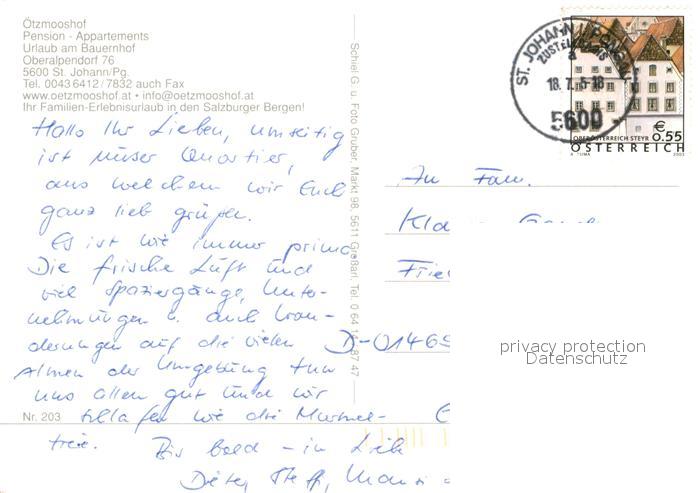 Ötzmooshof
Pension - Appartements
Urlaub am Bauernhof
Oberalpendorf 76
5600 St. Johann/Pg.
Tel. 0043 6412 / 7832 auch Fax
www.oetzmooshof.at • info@oetzmooshof.at
Ihr Familien-Erlebnisurlaub in den Salzburger Bergen!
Hallo Ihr Lieben, umseitig
ist unser Quartier,
aus welchem wir Euch
ganz lieb grüßen.
Es ist wie immer prima.
Die frische Luft und
viel Spaziergänge, Unter-
nehmungen u. auch Wan-
derungen auf die vielen
Almen der Umgebung tun
uns allen gut und wir
schlafen wie die Murmel-
tiere. Bis bald - in Liebe
Dieter, Steffi,
Nr. 203
Schiel G. u. Foto Gruber, Markt 98, 5611 Großarl, Tel. 0 64 14 87 47
ST. JOHANN I. PONGAU
ZUSTELLBASIS
a
18.7.5-18
5600
€
0.55
OBERÖSTERREICH STEYR
ÖSTERREICH
A. TUMA 2003
An Fam.
Kla
Frie
D-01465
privacy protection
Datenschutz